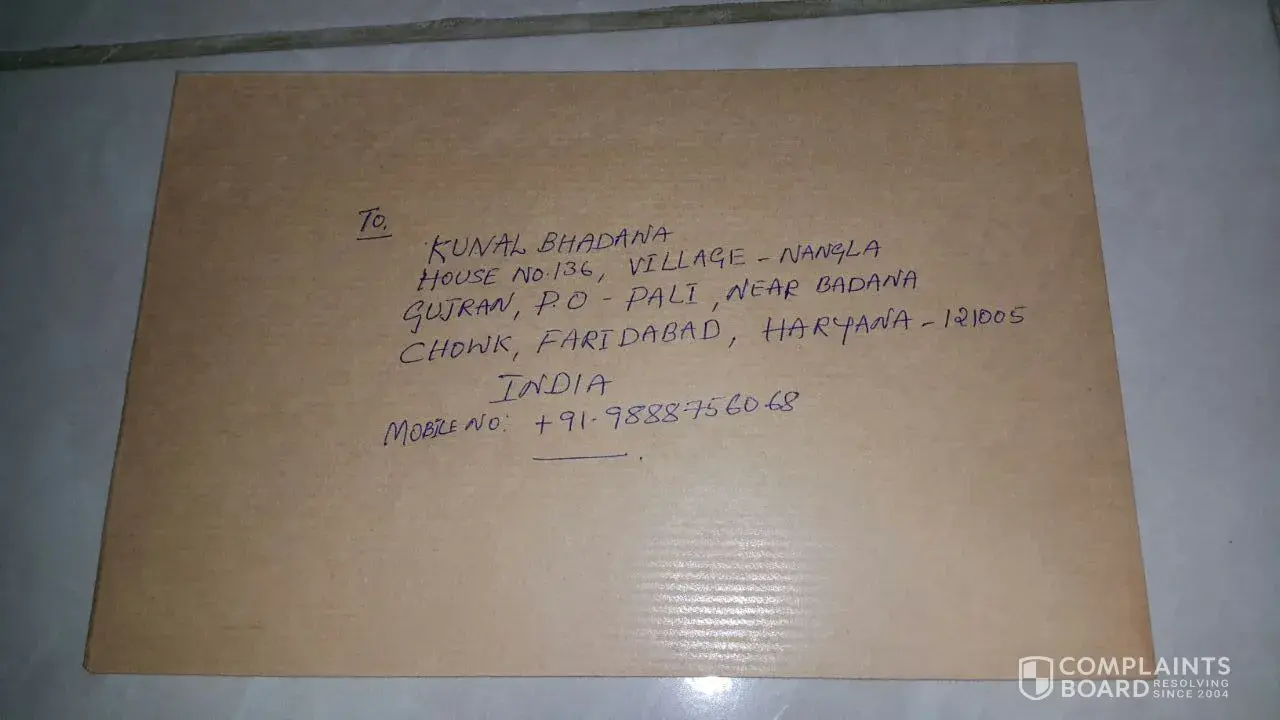 To,
KUNAL BHADANA
HOUSE NO.136, VILLAGE - NANGLA
GUJRAN, P.O - PALI, NEAR BADANA
CHOWK, FARIDABAD, HARYANA - 121005
INDIA
MOBILE NO: +91-9888756068
COMPLAINTS
BOARD RESOLVING
SINCE 2004